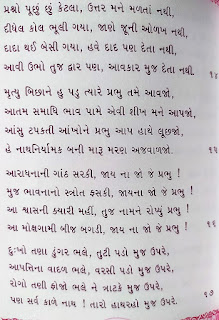 પ્રશ્નો પૂછું છું કેટલા, ઉત્તર મને મળતાં નથી,
દીધેલ કોલ ભૂલી ગયા, જાણે જૂની ઓળખ નથી,
દાદા થઈ બેસી ગયા, હવે દાદ પણ દેતા નથી,
આવી ઉભો તુજ દ્વાર પણ, આવકાર મુજ દેતા નથી. ૧૪
મૃત્યુ બિછાને હું પડુ ત્યારે પ્રભુ તમે આવજો,
આતમ સમાધિ ભાવ પામે એવી શીખ મને આપજો,
આંસુ ટપકતી આંખોને પ્રભુ આપ હાથે લૂછજો,
હે નાથનિર્યામક બની મારૂ મરણ અજવાળજો. ૧૫
આરાધનાની ગાંઠ સરકી, જાય ના જો જે પ્રભુ !
મુજ ભાવનાનો સ્ત્રોત ફસકી, જાયના જો જે પ્રભુ !
આ શ્વાસની ક્યારી મહીં, તુજ નામને રોપ્યું પ્રભુ !
આ મોક્ષગામી બીજ બગડી, જાય ના જો જે પ્રભુ ! ૧૬
દુઃખો તણા ડુંગર ભલે, તુટી પડો મુજ ઉપરે,
આપત્તિના વાદળ ભલે, વરસી પડો મુજ ઉપરે,
રોગો તણી ફોજો ભલે ને ત્રાટકે મુજ ઉપરે,
પણ સર્વ કાળે નાથ ! તારો હાથરહો મુજ ઉપરે. ૧૭